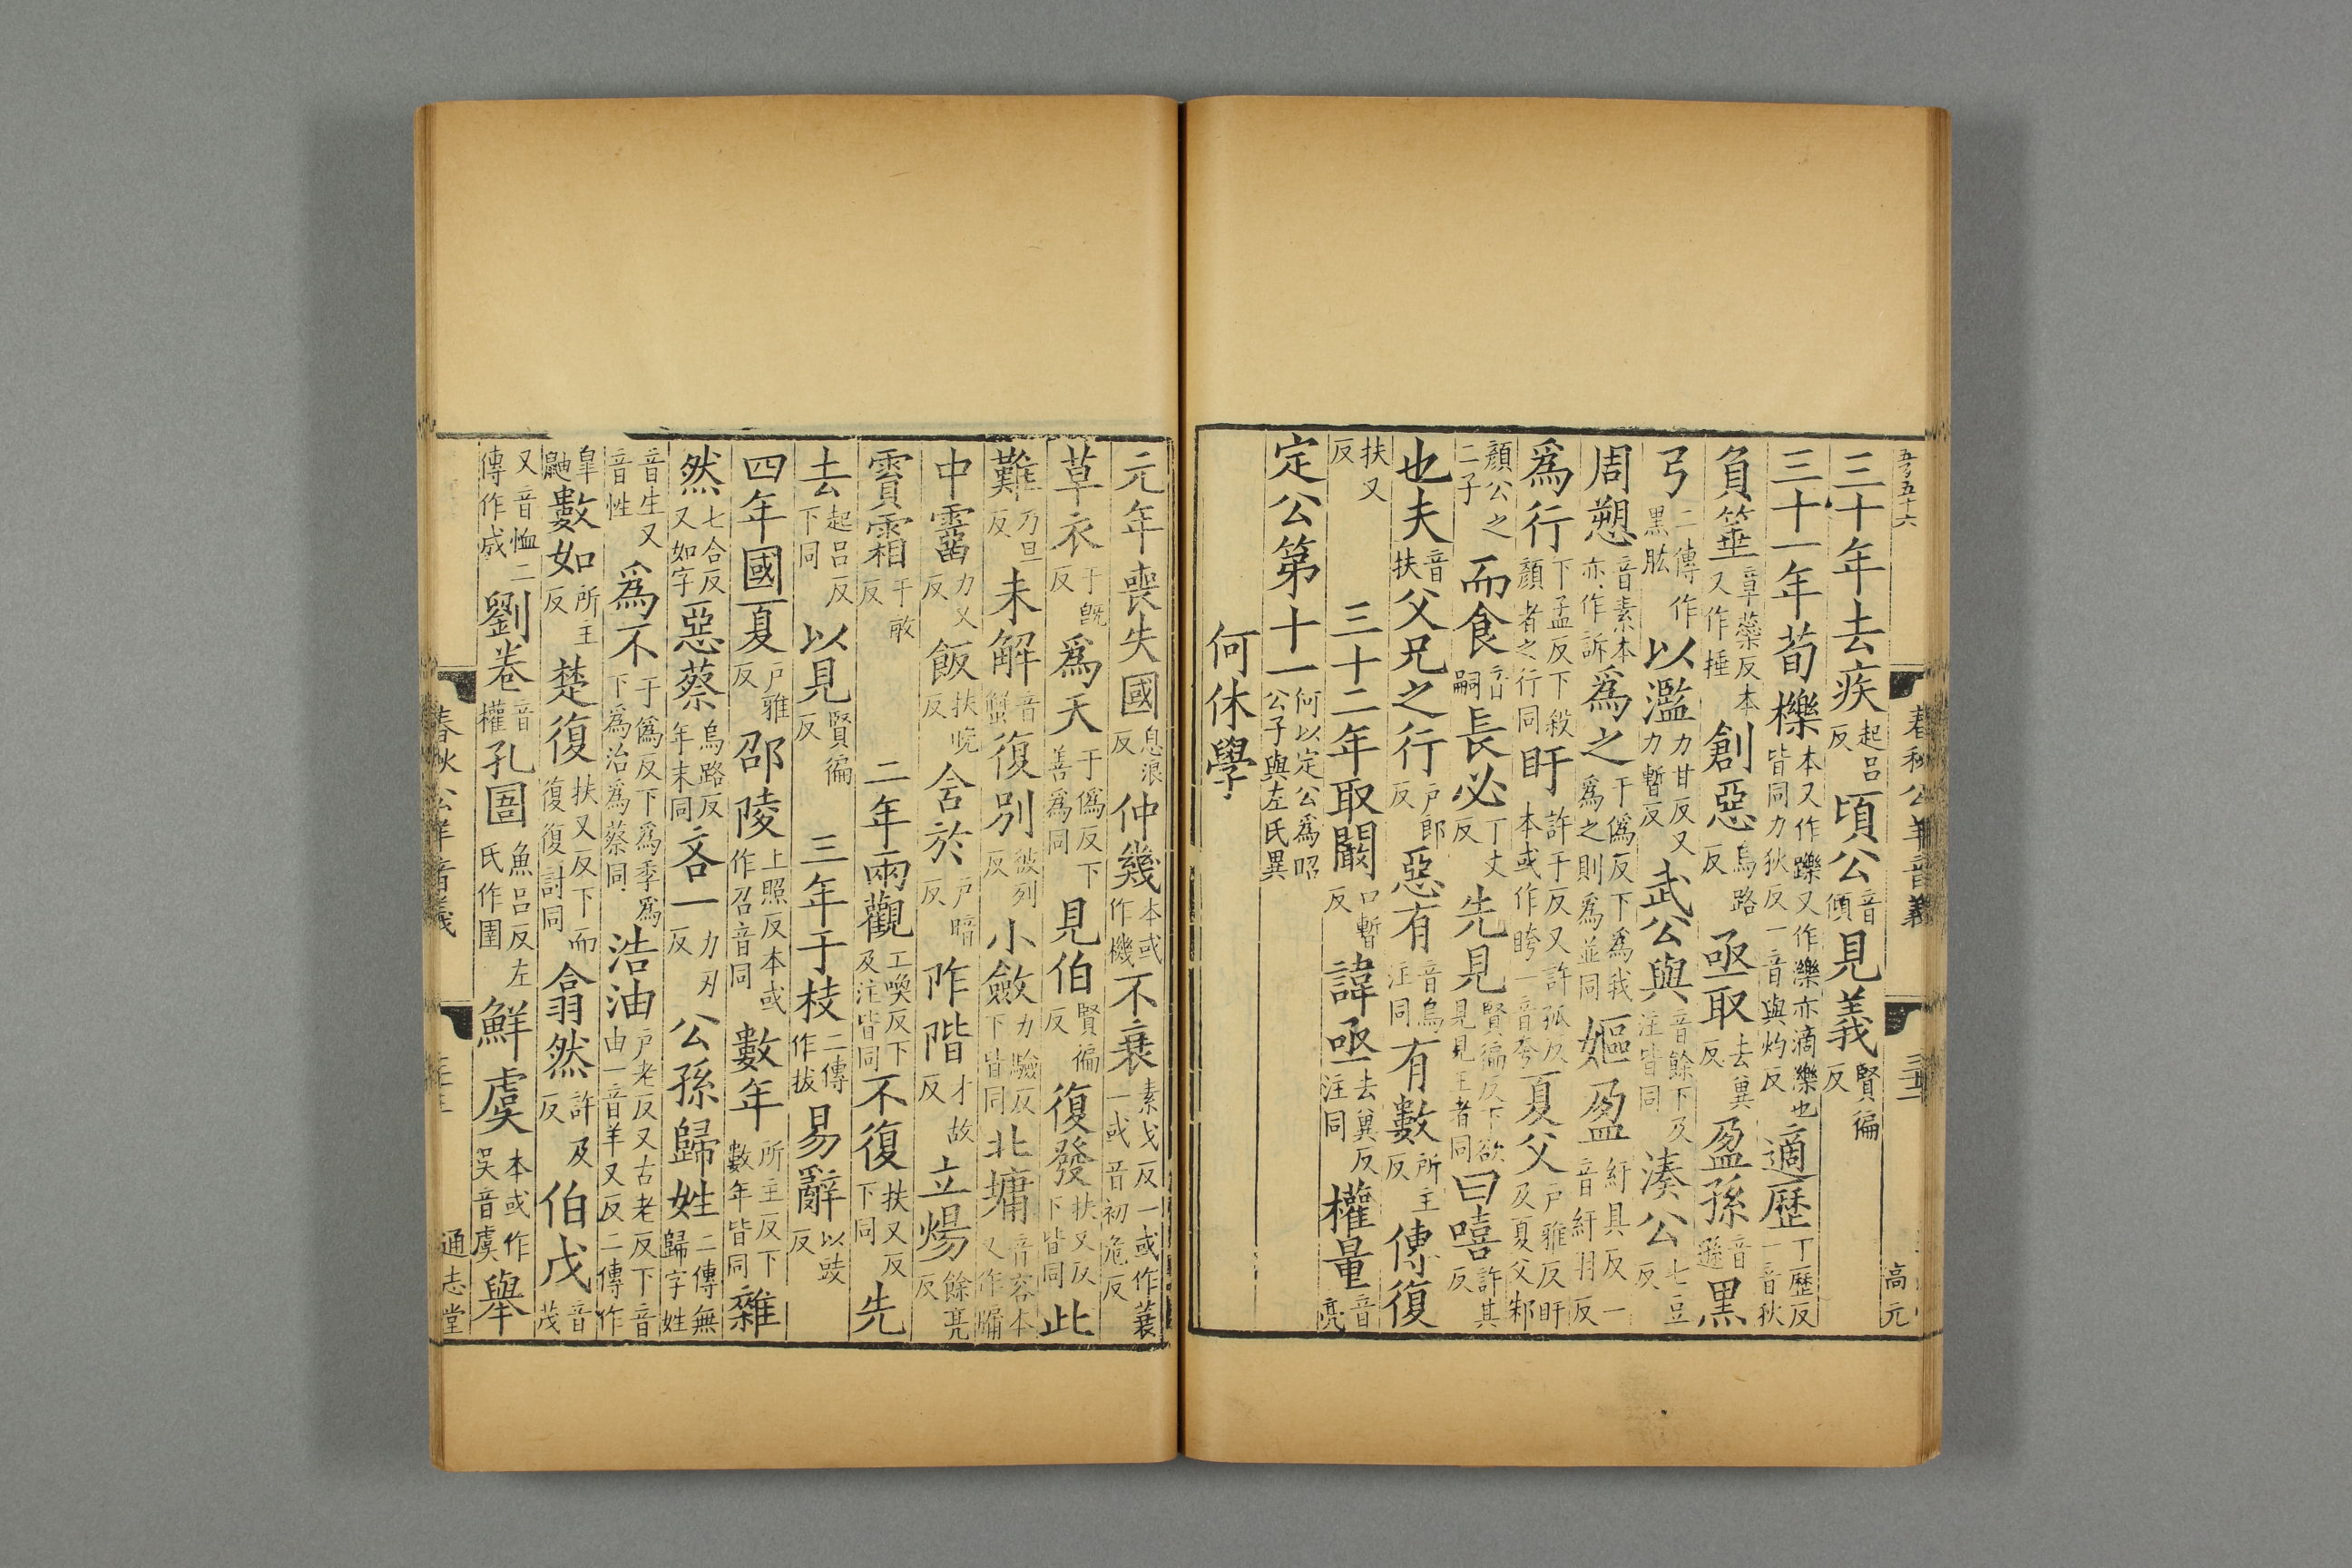 三十年去疾起呂反頃公音傾見義賢徧反
三十一年荀櫟本又作躒又作濼亦滴樂也皆同力狄反一音與灼反適歷丁歷反一音狄
負箠章蘂反本又作捶創惡烏路反亟取去兾反盈孫音遜黑
弓二傳作黑肱以濫力甘反又力暫反武公與音餘下及注皆同湊公七豆反
周愬音素本亦作訴爲之于僞反下爲我爲之則爲並同嫗盈紆具反一音紆羽反
爲行下孟反下殺顏者之行同盱許于反又許孤反本或作盻一音夸夏父戶雅反盱及夏父邾
顏公之二子而食音嗣長必丁丈反先見賢徧反下欲見見王者同曰嘻許其反
也夫音扶父兄之行戶郎反惡有音烏注同有數所主反傳復
扶又反三十二年取闞口暫反諱亟去兾反注同權量音亮
定公第十一何以定公爲昭公子與左氏異
何休學
元年喪失國息浪反仲幾本或作機不蓑素戈反一或作蓑一或音初危反
草衣于旣反爲天于僞反下善爲同見伯賢徧反復發扶又反下皆同此
難乃旦反未解音蟹復別彼列反小斂力驗反下皆同北墉音容本又作牖
中霤力又反飯扶晚反含於戶暗反阼階才故反立煬餘亮反
賈霜于敏反二年兩觀工喚反下及注皆同不復扶又反下同先
去起呂反下同以見賢徧反三年于枝二傳作拔易辭以豉反
四年國夏戶雅反邵陵上照反本或作召音同數年所主反下數年皆同雜
然七合反又如字惡蔡烏路反年末同吝一力刃反公孫歸姓二傳無歸字姓
音生又音性爲不于僞反下爲季爲下爲治爲蔡同浩油戶老反又古老反下音由一音羊又反二傳作
臯鼬數如所主反楚復扶又反下而復復討同翕然許及反伯戊音茂
又音恤二傳作戍劉卷音權孔圄魚呂反左氏作圉鮮虞本或作吴音虞舉
春秋公羊音義
高元
通志堂